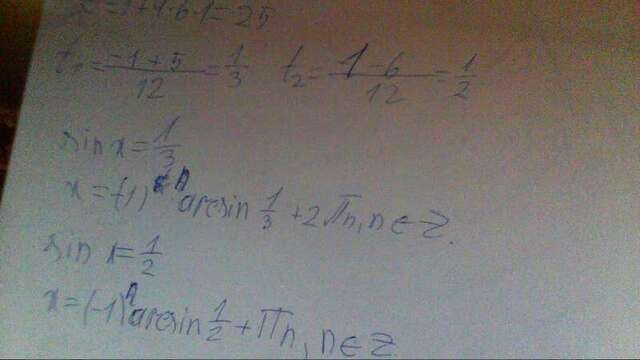 = 1+4·6·1=25
t₁ = (-1+5)/12 = 1/3   t₂ = (1-6)/12 = 1/2
sin x = 1/3
x = (-1)ⁿ arcsin 1/3 + 2πn, n ∈ Z.
sin x = 1/2
x = (-1)ⁿ arcsin 1/2 + πn, n ∈ Z